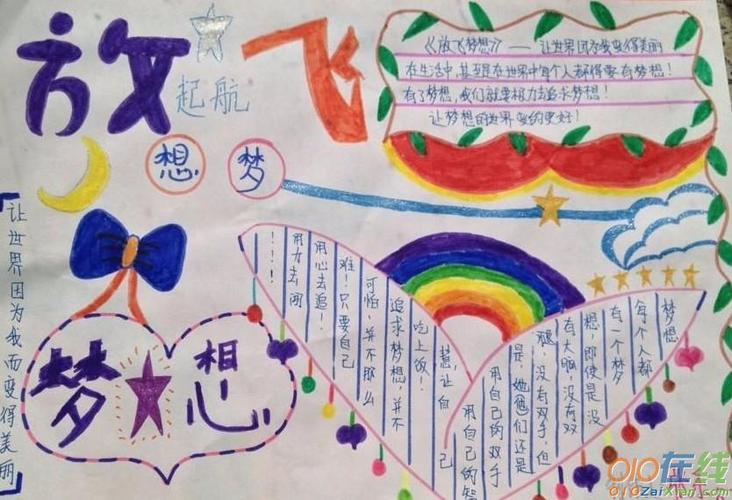 放飞
起航
想梦
《放飞梦想》——让世界因为我变得美丽
在生活中,甚至在世界中每个人都得要有梦想!
有了梦想,我们就要极力去追求梦想!
让梦想的世界变的更好!
让世界因为我而变得美丽
梦想
梦想
每个人都
有一个梦
想,即使是没
有大脑,没有双
腿,没有双手,但
是,她他们还是
用自己的双手
用自己的智
慧,让自己
吃上饭!
追求梦想,并不
可怕,并不那么
难!只要自己
用心去追!
用力去闯
!!!!
OIO在线
OIOZaiXian.com